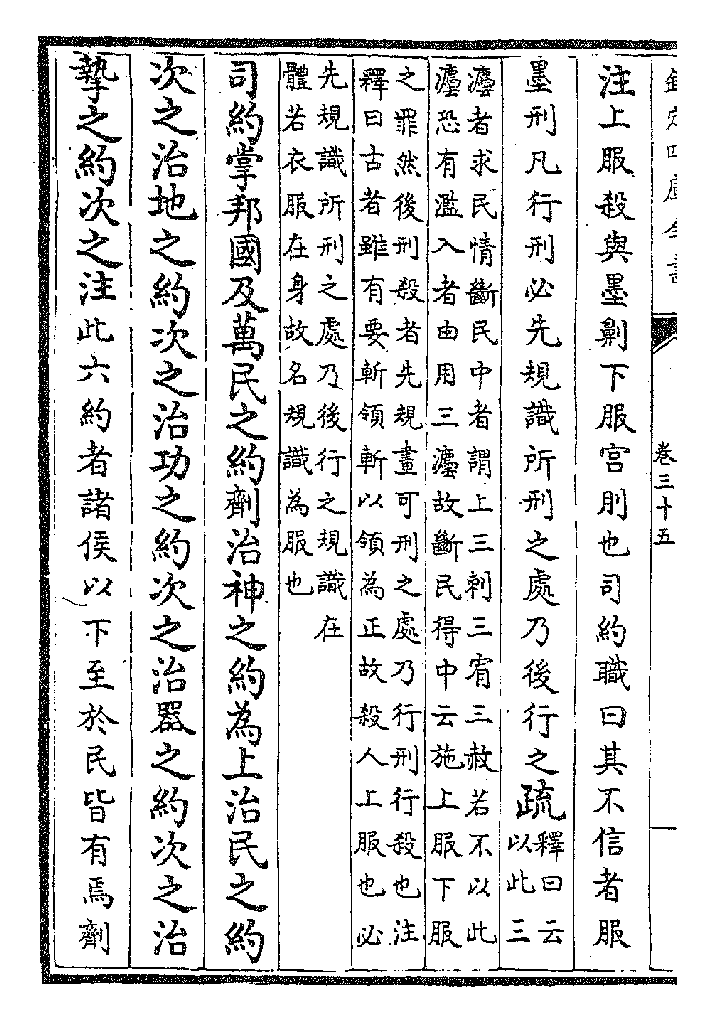 欽定四庫全書
卷三十五
注上服殺與墨劓下服宮刖也司約職曰其不信者服
墨刑凡行刑必先規識所刑之處乃後行之疏
釋曰云
以此三
灋者求民情斷民中者謂上三刺三宥三赦若不以此
灋恐有濫入者由用三灋故斷民得中云施上服下服
之罪然後刑殺者先規畫可刑之處乃行刑行殺也注
釋曰古者雖有要斬領斬以領為正故殺人上服也必
先規識所刑之處乃後行之規識在
體若衣服在身故名規識為服也
司約掌邦國及萬民之約劑治神之約為上治民之約
次之治地之約次之治功之約次之治器之約次之治
摯之約次之注此六約者諸侯以下至於民皆有焉劑